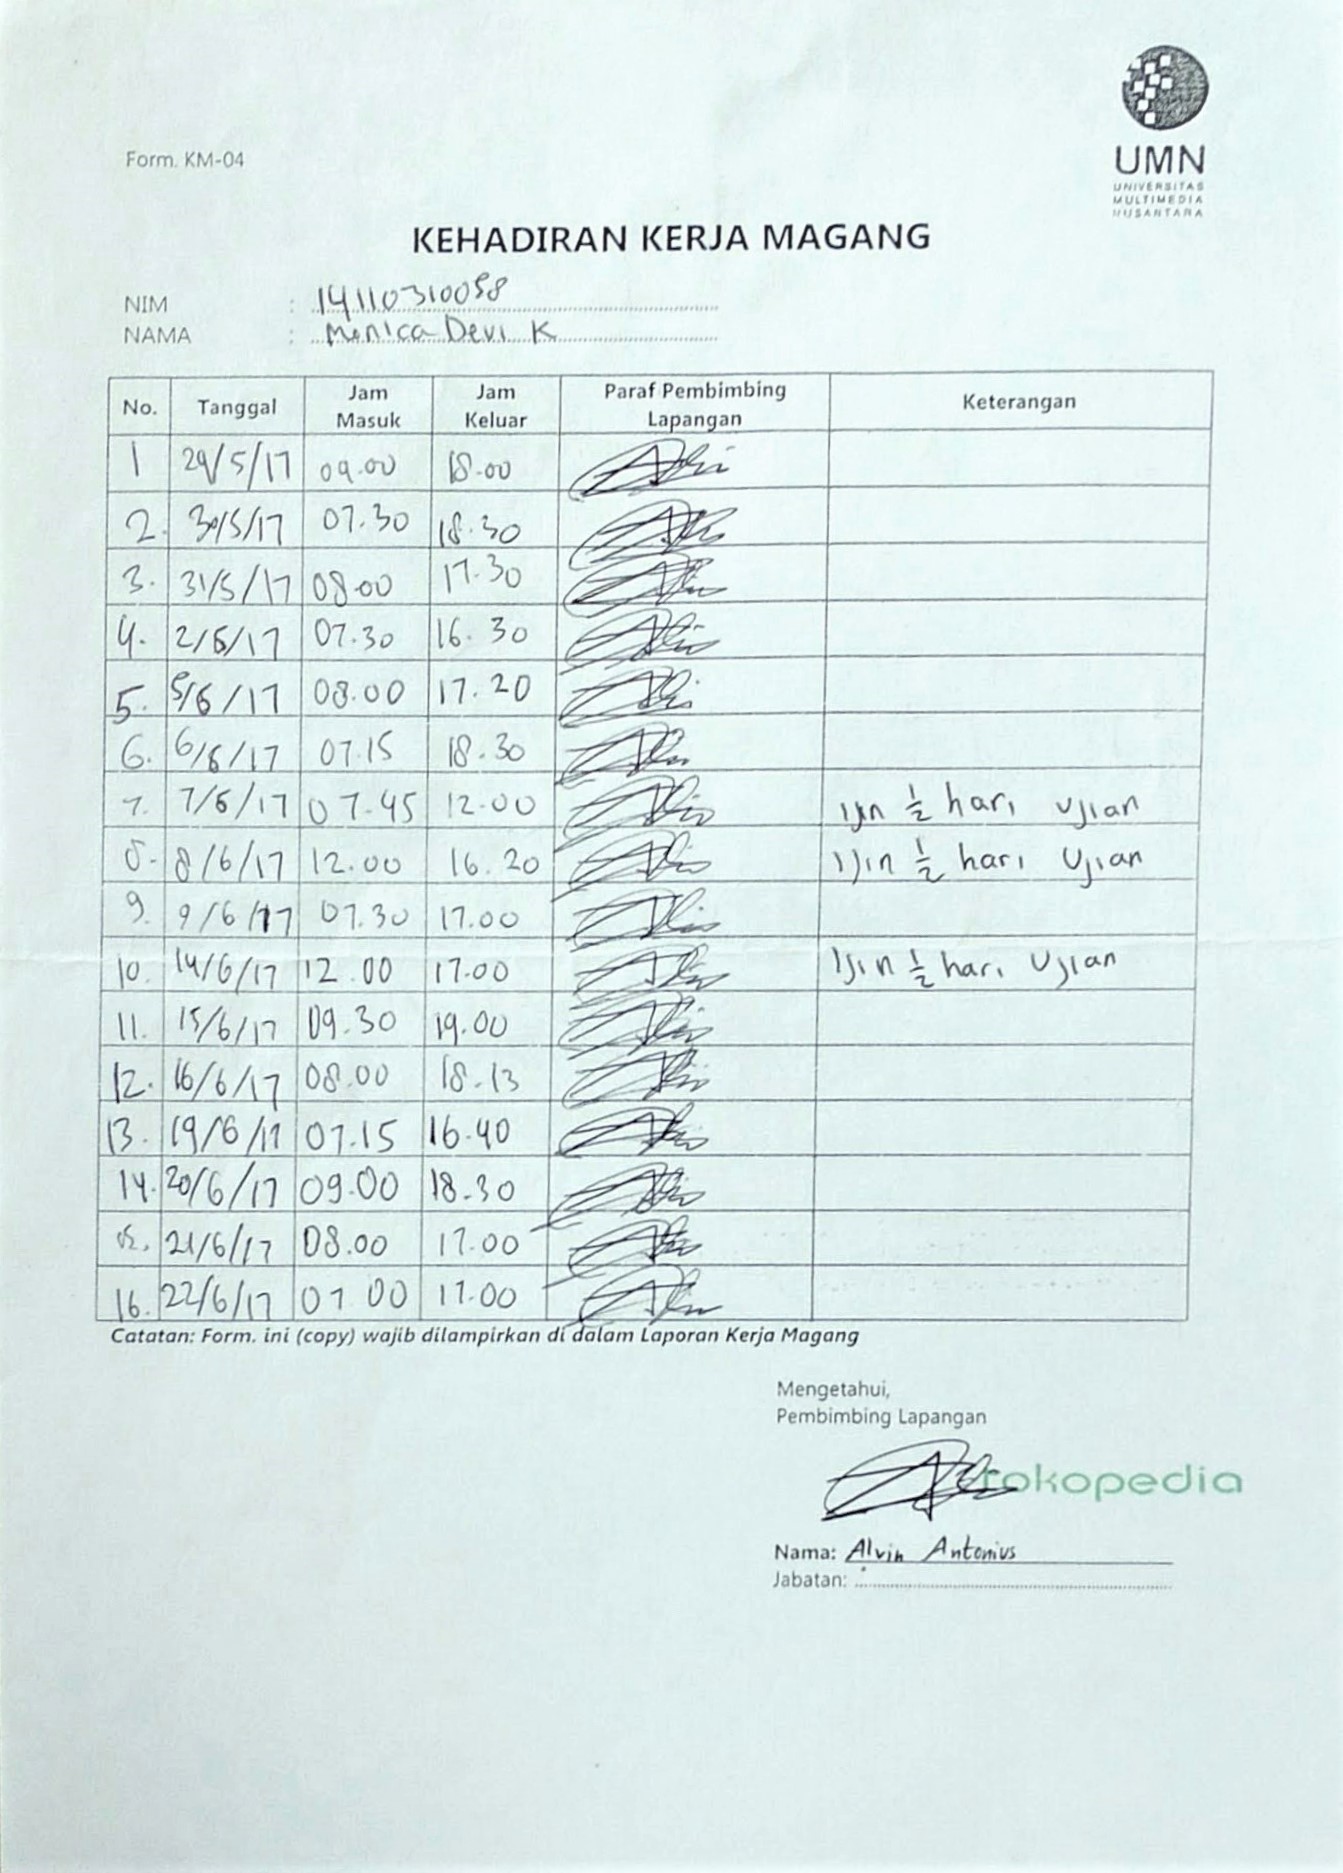 Form. KM-04
UMN
UNIVERSITAS
MULTIMEDIA
NUSANTARA
KEHADIRAN KERJA MAGANG
NIM : 14110310058
NAMA : Monica Devi K
No. Tanggal Jam Masuk Jam Keluar Paraf Pembimbing Lapangan Keterangan
1 29/5/17 09.00 18.00
2. 30/5/17 07.30 18.30
3. 31/5/17 08.00 17.30
4. 2/6/17 07.30 16.30
5. 5/6/17 08.00 17.20
6. 6/6/17 07.15 18.30
7. 7/6/17 07.45 12.00 Ijin 1/2 hari Ujian
8. 8/6/17 12.00 16.20 Ijin 1/2 hari Ujian
9. 9/6/17 07.30 17.00
10. 14/6/17 12.00 17.00 Ijin 1/2 hari Ujian
11. 15/6/17 09.30 19.00
12. 16/6/17 08.00 18.13
13. 19/6/17 07.15 16.40
14. 20/6/17 09.00 18.30
15. 21/6/17 08.00 17.00
16. 22/6/17 07.00 17.00
Catatan: Form. ini (copy) wajib dilampirkan di dalam Laporan Kerja Magang
Mengetahui,
Pembimbing Lapangan
tokopedia
Nama: Alvin Antonius
Jabatan: